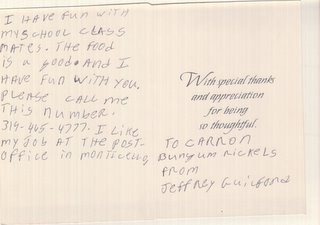 I HAVE FUN WITH
MYSCHOOL CLASS
MATES. THE FOOD
IS a GOOD. AND I
HAVE FUN WITH YOU.
PLEASE CALL ME
THIS NUMBER.
314-465-4777. I LIKE
MY JOB AT THE POST-
OFFICE IN MONTICELLO,
With special thanks
and appreciation
for being
so thoughtful.
TO CARRON
Bungum NICKELS
FROM
JEFFREY GUILFORD